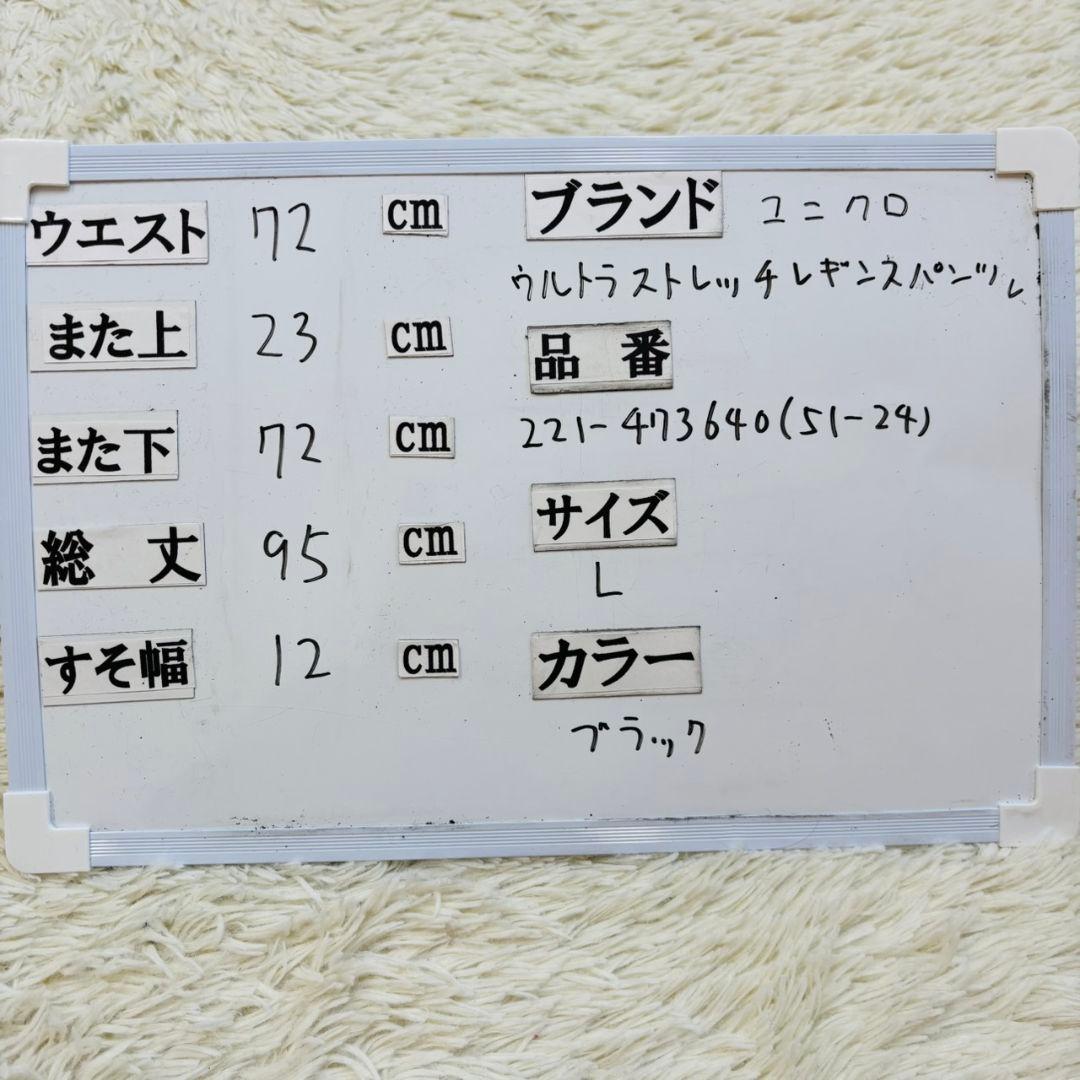 ウエスト 72 cm
また上 23 cm
また下 72 cm
総 丈 95 cm
すそ幅 12 cm
ブランド ユニクロ
ウルトラストレッチレギンスパンツL
品 番
221-473640(51-24)
サイズ
L
カラー
ブラック